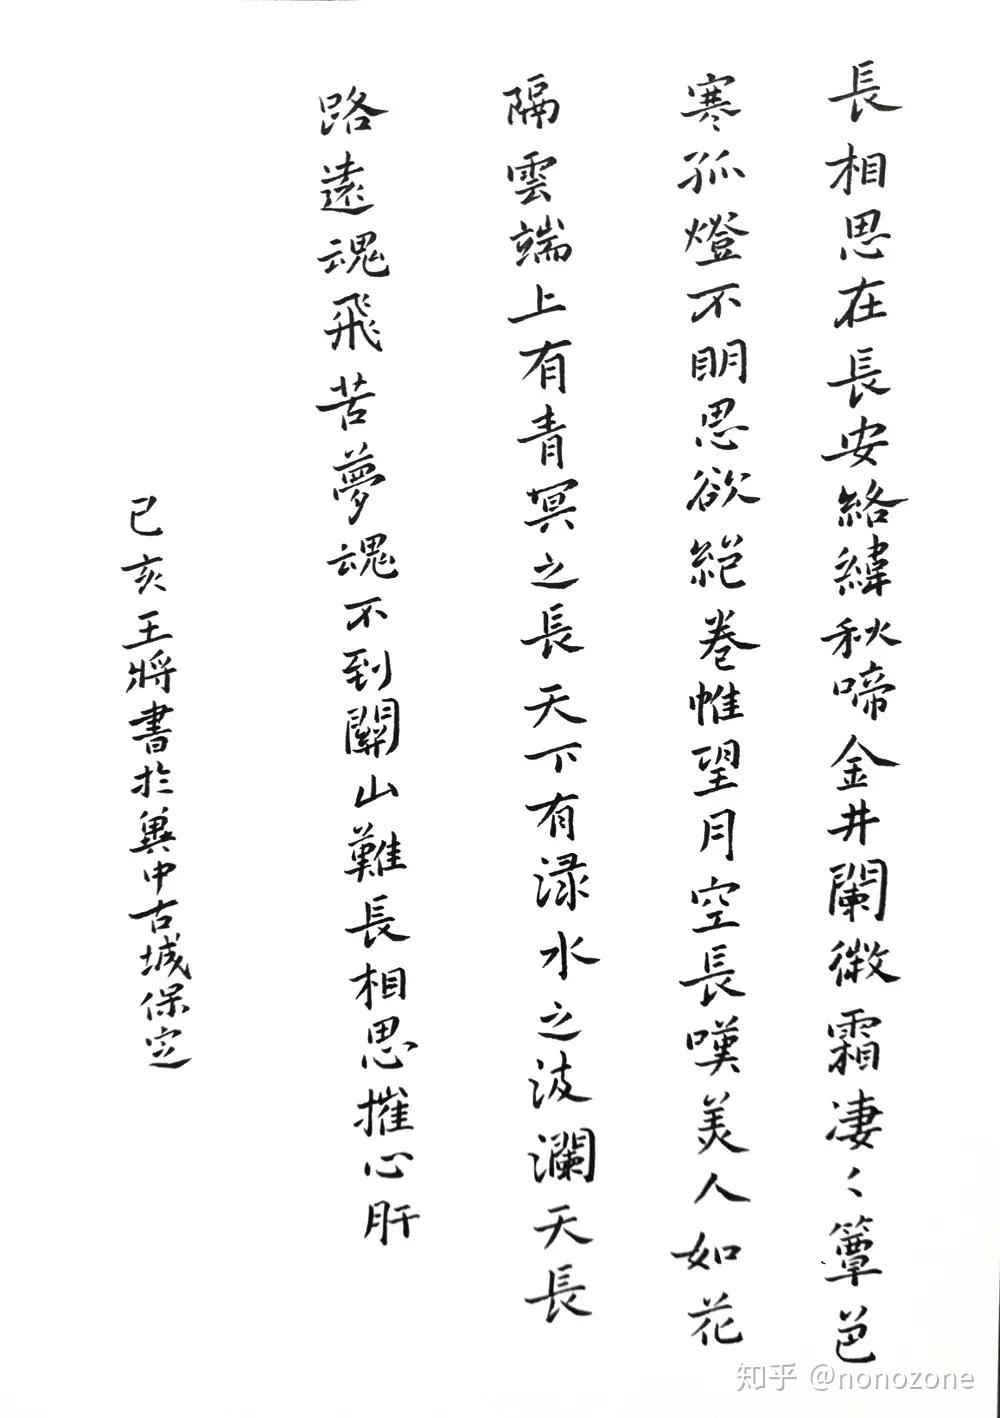 長相思在長安絡緯秋啼金井闌微霜淒〻簟色
寒孤燈不明思欲絕卷帷望月空長嘆美人如花
隔雲端上有青冥之長天下有淥水之波瀾天長
路遠魂飛苦夢魂不到關山難長相思摧心肝
己亥王將書於冀中古城保定
知乎 @nonozone